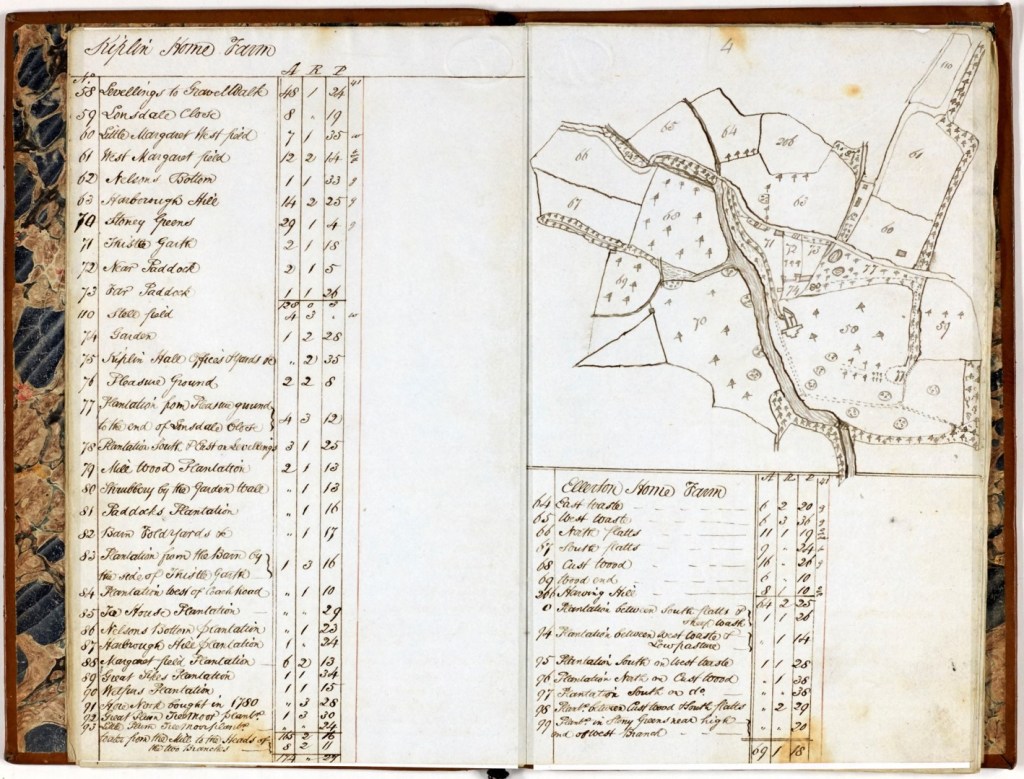 Kiplin Home Farm
No A R P
58 Levellings to Gravel Walk 48 1 24
59 Lonsdale Close 8 " 19
60 Little Margaret West field 7 1 35
61 West Margaret field 12 2 14
62 Nelsons Bottom 1 1 33
63 Harborough Hill 14 2 25
70 Stoney Greens 29 1 4
71 Thistle Garth 2 1 18
72 Near Paddock 2 1 5
73 Far Paddock 1 1 26
128 0 3
110 Stell field 4 3 "
74 Garden 1 2 28
75 Kiplin Hall Offices & Yards &c " 2 35
76 Pleasure Ground 2 2 8
77 Plantation from Pleasure ground
to the end of Lonsdale Close 4 3 12
78 Plantation South & East on Levellings 3 1 25
79 Mill Wood Plantation 2 1 13
80 Shrubbery by the Garden Wall " 1 13
81 Paddocks Plantation " 1 16
82 Barn Fold Yards &c " 1 17
83 Plantation from the Barn by
the side of Thistle Garth 1 3 16
84 Plantation West of Coach road " 1 10
85 Ice House Plantation " " 29
86 Nelsons Bottom plantation " 1 23
87 Harbrough Hill plantation 1 " 24
88 Margaret field Plantation 6 2 13
89 Great Plantation 1 1 34
90 Plantation 1 1 15
91 bought in 1780 " 3 28
92 Great 1 3 30
93 24
Water from the Mill to the Heads of 165 2 16
the two Branches 8 2 11
174 " 27
4
110
65
64
206
61
66
63
60
67
68
71
72
73
77
74
69
70
58
59
77
A R P
Ellerton Home Farm
64 East Waste 6 2 20
65 West Waste 6 3 36
66 North flatts 11 1 19
67 South flatts 9 " 24
68 East Wood 16 " 26
69 Wood end 6 " 10
Hill 8 1 10
64 2 25
Plantation between South flatts &
Sheep wash 1 1 26
94 Plantation between West Waste &
Low pasture " 1 14
95 Plantation South on West Waste 1 1 28
96 Plantation North on East Wood " 1 38
97 Plantation South on do " " 38
98 Plantn between East Wood & South flatts " 2 29
99 Plantn in Stony Greens near high
end of West Branch " " 20
69 1 18